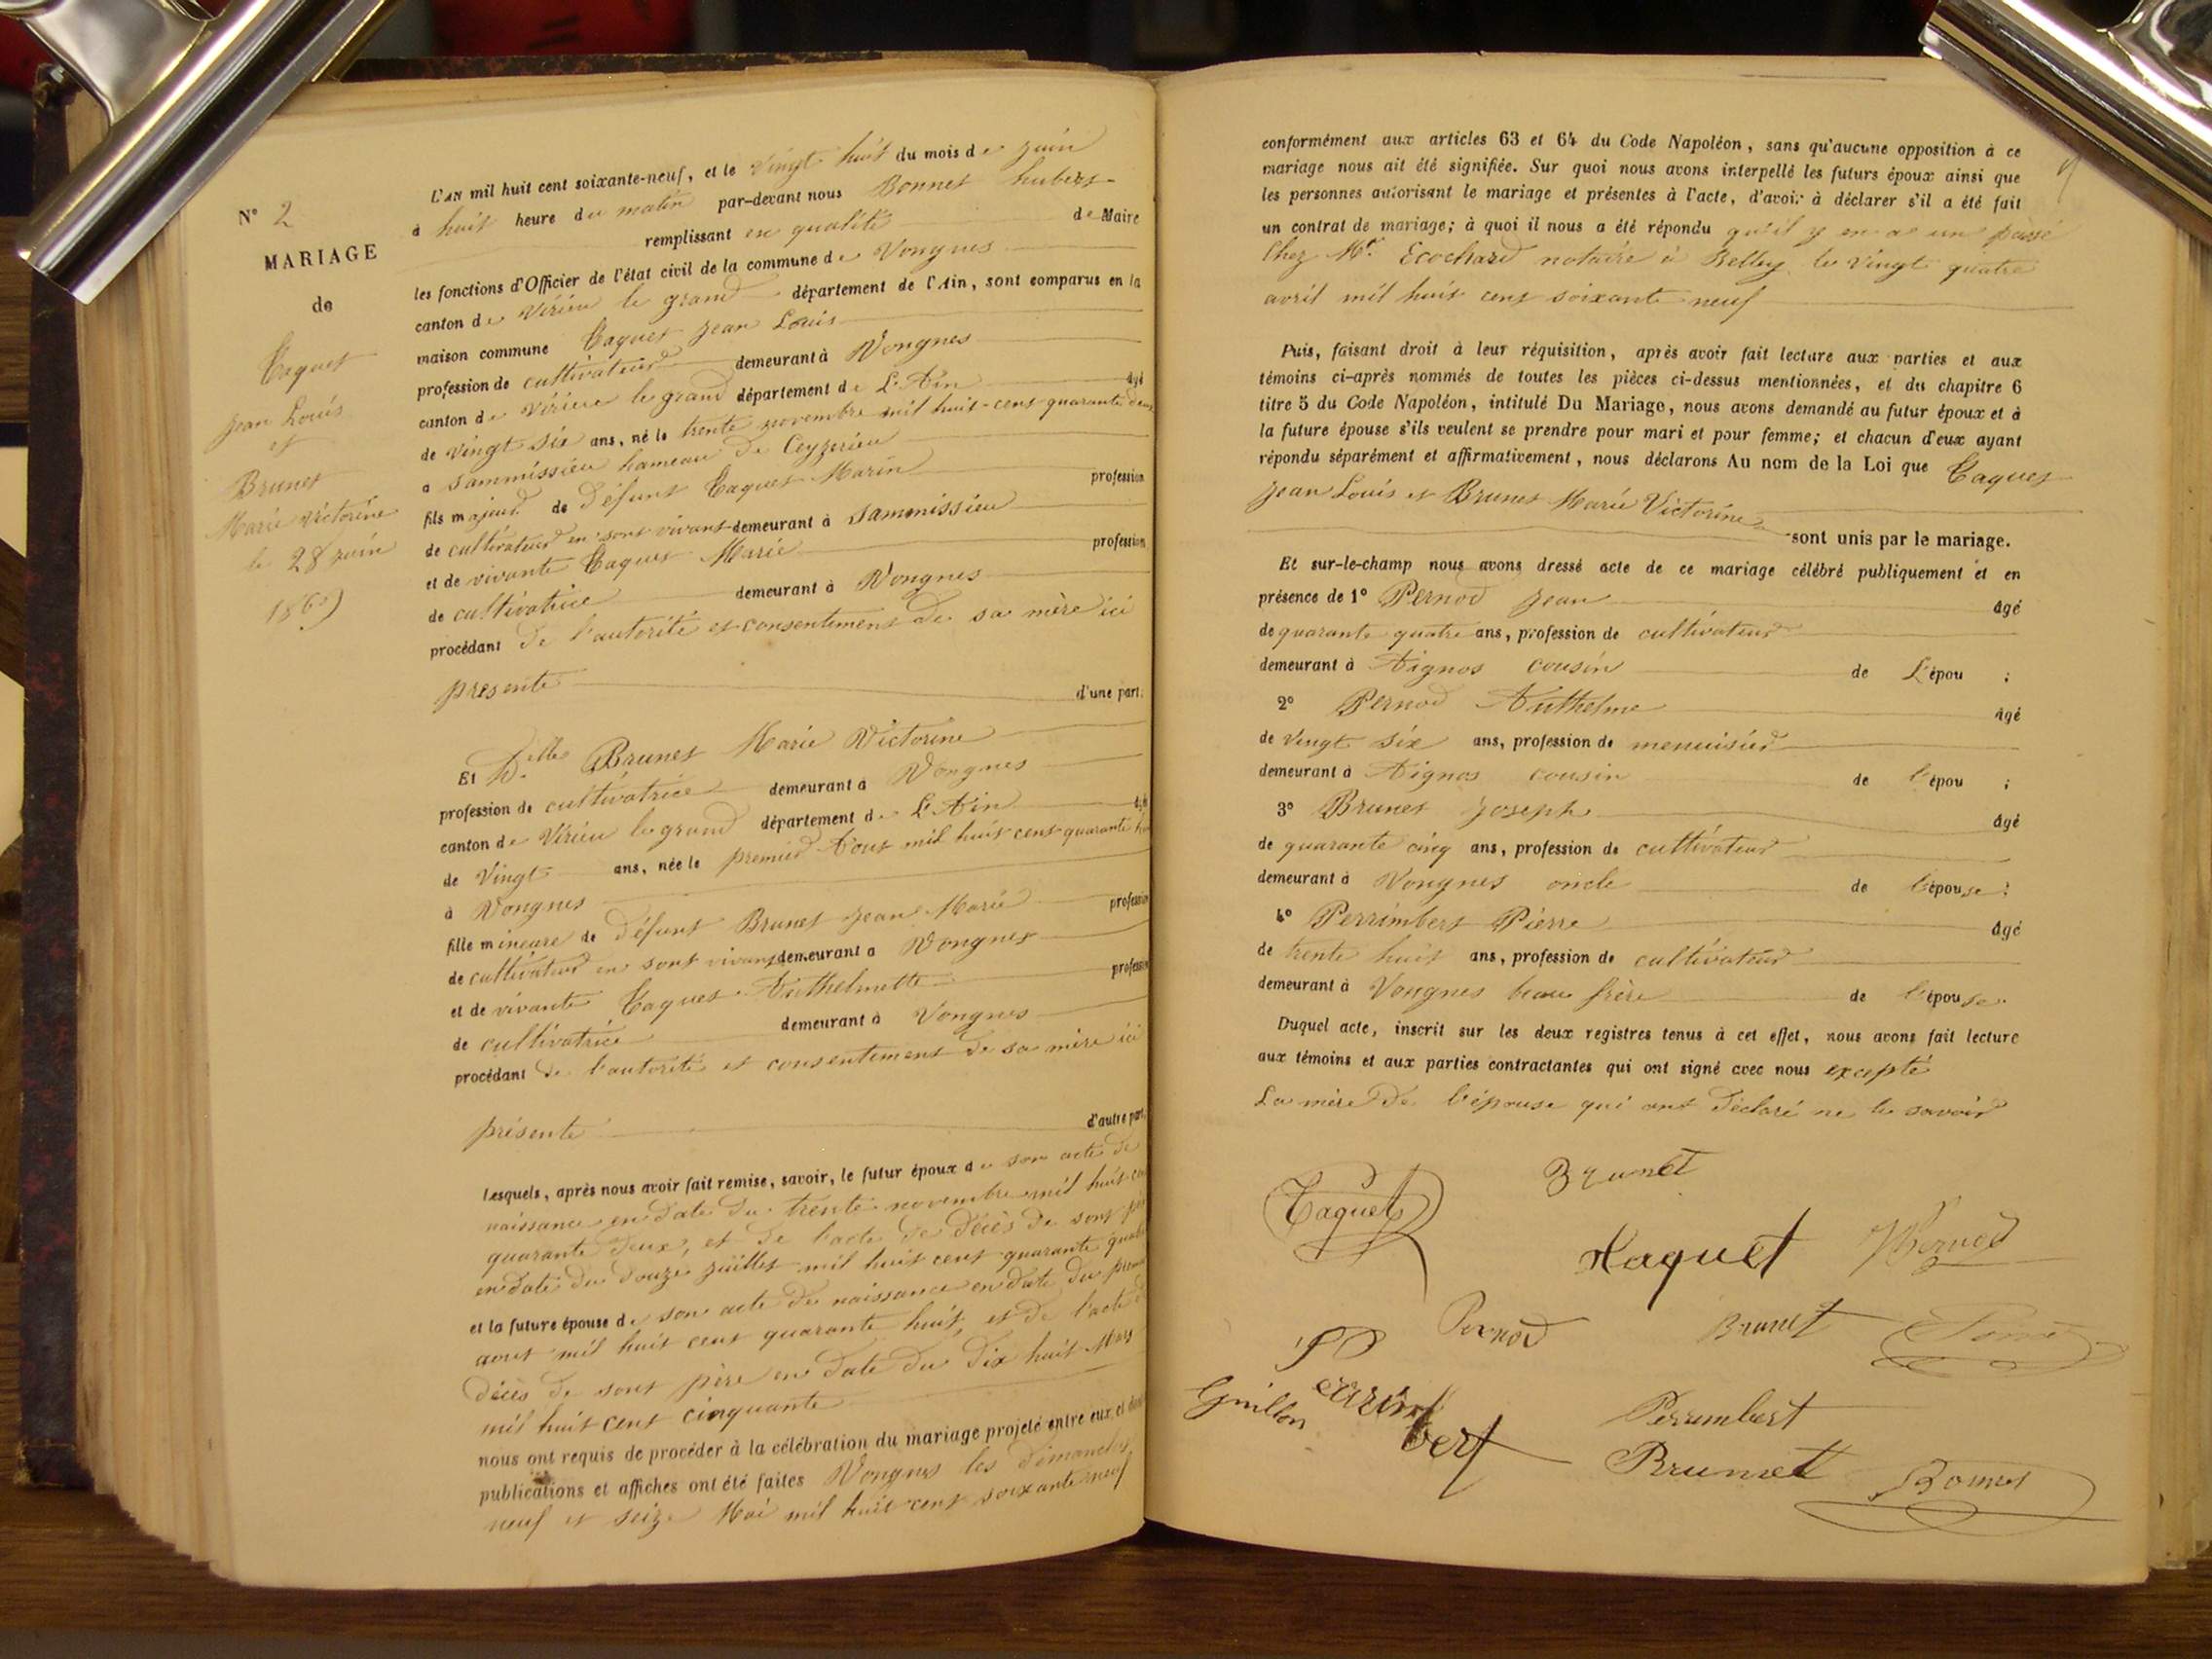 N° 2
MARIAGE
de
Caquet
Jean Louis
et
Brunet
Marie Victorine
le 28 juin
1869
L'an mil huit cent soixante-neuf, et le vingt huit du mois de juin
à huit heure du matin par-devant nous Bonnet hubert
remplissant en qualité de Maire
les fonctions d'Officier de l'état civil de la commune de Vongnes
canton de Virieu le grand département de l'Ain, sont comparus en la
maison commune Caquet Jean Louis
profession de cultivateur demeurant à Vongnes
canton de Virieu le grand département de L'Ain âgé
de vingt six ans, né le trente novembre mil huit-cent quarante deux
a Sammissieu hameau de Ceyzerieu
fils majeur de défunt Caquet Marin profession
de cultivateur en sont vivant demeurant à Sammissieu
et de vivante Caquet Marie profession
de cultivatrice demeurant à Vongnes
procédant de l'autorité et consentement de sa mère ici
présente d'une part;
Et Delle Brunet Marie Victorine
profession de cultivatrice demeurant à Vongnes
canton de Virieu le grand département de L'Ain âgée
de vingt ans, née le premier Aout mil huit cent quarante huit
à Vongnes
fille mineure de défunt Brunet Jean Marie profession
de cultivateur en sont vivant demeurant à Vongnes
et de vivante Caquet Anthelmette profession
de cultivatrice demeurant à Vongnes
procédant de l'autorité et consentement de sa mère ici
présente d'autre part,
Lesquels, après nous avoir fait remise, savoir, le futur époux de son acte de
naissance en date du trente novembre mil huit cent
quarante deux, et de l'acte de décès de sont père
en date du douze juillet mil huit cent quarante quatre
et la future épouse de son acte de naissance en date du premier
aout mil huit cent quarante huit, et de l'acte de
décès de sont père en date du dix huit Mars
mil huit cent cinquante
nous ont requis de procéder à la célébration du mariage projeté entre eux, et dont
publications et affiches ont été faites Vongnes les dimanches,
neuf et seize Mai mil huit cent soixante neuf
conformément aux articles 63 et 64 du Code Napoléon, sans qu'aucune opposition à ce
mariage nous ait été signifiée. Sur quoi nous avons interpellé les futurs époux ainsi que
les personnes autorisant le mariage et présentes à l'acte, d'avoir à déclarer s'il a été fait
un contrat de mariage; à quoi il nous a été répondu qu'il y en a un passé
Chez Me. Ecochard notaire à Belley le vingt quatre
avril mil huit cent soixante neuf
Puis, faisant droit à leur réquisition, après avoir fait lecture aux parties et aux
témoins ci-après nommés de toutes les pièces ci-dessus mentionnées, et du chapitre 6
titre 5 du Code Napoléon, intitulé Du Mariage, nous avons demandé au futur époux et à
la future épouse s'ils veulent se prendre pour mari et pour femme; et chacun d'eux ayant
répondu séparément et affirmativement, nous déclarons Au nom de la Loi que Caquet
Jean Louis et Brunet Marie Victorine
sont unis par le mariage.
Et sur-le-champ nous avons dressé acte de ce mariage célébré publiquement et en
présence de 1° Pernod Jean âgé
de quarante quatre ans, profession de cultivateur
demeurant à Aignos cousin de L'épou ;
2° Pernod Anthelme âgé
de vingt six ans, profession de menuisier
demeurant à Aignos cousin de l'épou ;
3° Brunet Joseph âgé
de quarante cinq ans, profession de cultivateur
demeurant à Vongnes oncle de l'épouse;
4° Perrimbert Pierre âgé
de trente huit ans, profession de cultivateur
demeurant à Vongnes beau frère de l'épouse.
Duquel acte, inscrit sur les deux registres tenus à cet effet, nous avons fait lecture
aux témoins et aux parties contractantes qui ont signé avec nous excepté
La mère de l'épouse qui ont déclaré ne le savoir
Brunet
Caquet
Caquet
Pernod
Pernod
Brunet
PP
Guillon
Perrimbert
Perrimbert
Brunet
Bonnet